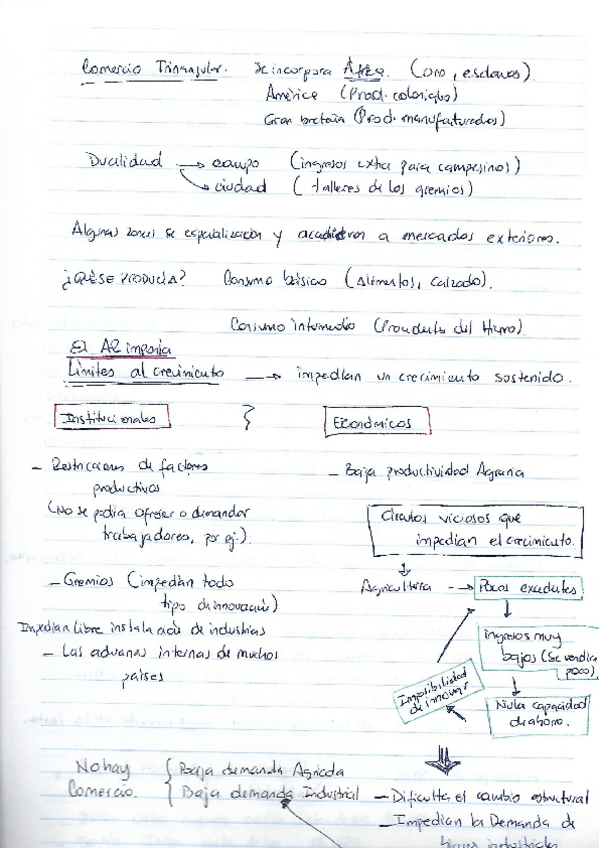 Comercio Triangular. Se incorpora África. (oro, esclavos).
América (Prod. coloniales)
Gran bretaña (Prod. manufacturados)
Dualidad → campo (ingresos extra para campesinos)
→ ciudad (talleres de los gremios)
Algunas zonas se especializaron y acudieron a mercados exteriores.
¿QUÉ SE PRODUCÍA? Consumo básico (Alimentos, calzado).
Consumo intermedio (Producto del Hierro).
El AR imponía
Límites al crecimiento → impedían un crecimiento sostenido.
Institucionales } Económicos
- Restricciones de factores
productivos
(No se podía ofrecer o demandar
trabajadores, por ej.).
- Gremios (impedían todo
tipo de innovación)
Impedían libre instalación de industrias
- Las aduanas internas de muchos
países
- Baja productividad Agraria
Círculos viciosos que
impedían el crecimiento.
Agricultura → Pocos excedentes
ingresos muy
bajos (Se vendía
poco)
Nula capacidad
de ahorro.
Imposibilidad
de innovar
No hay { Baja demanda Agrícola
Comercio. { Baja demanda Industrial
- Dificulta el cambio estructural
- Impedían la Demanda de
bienes industriales